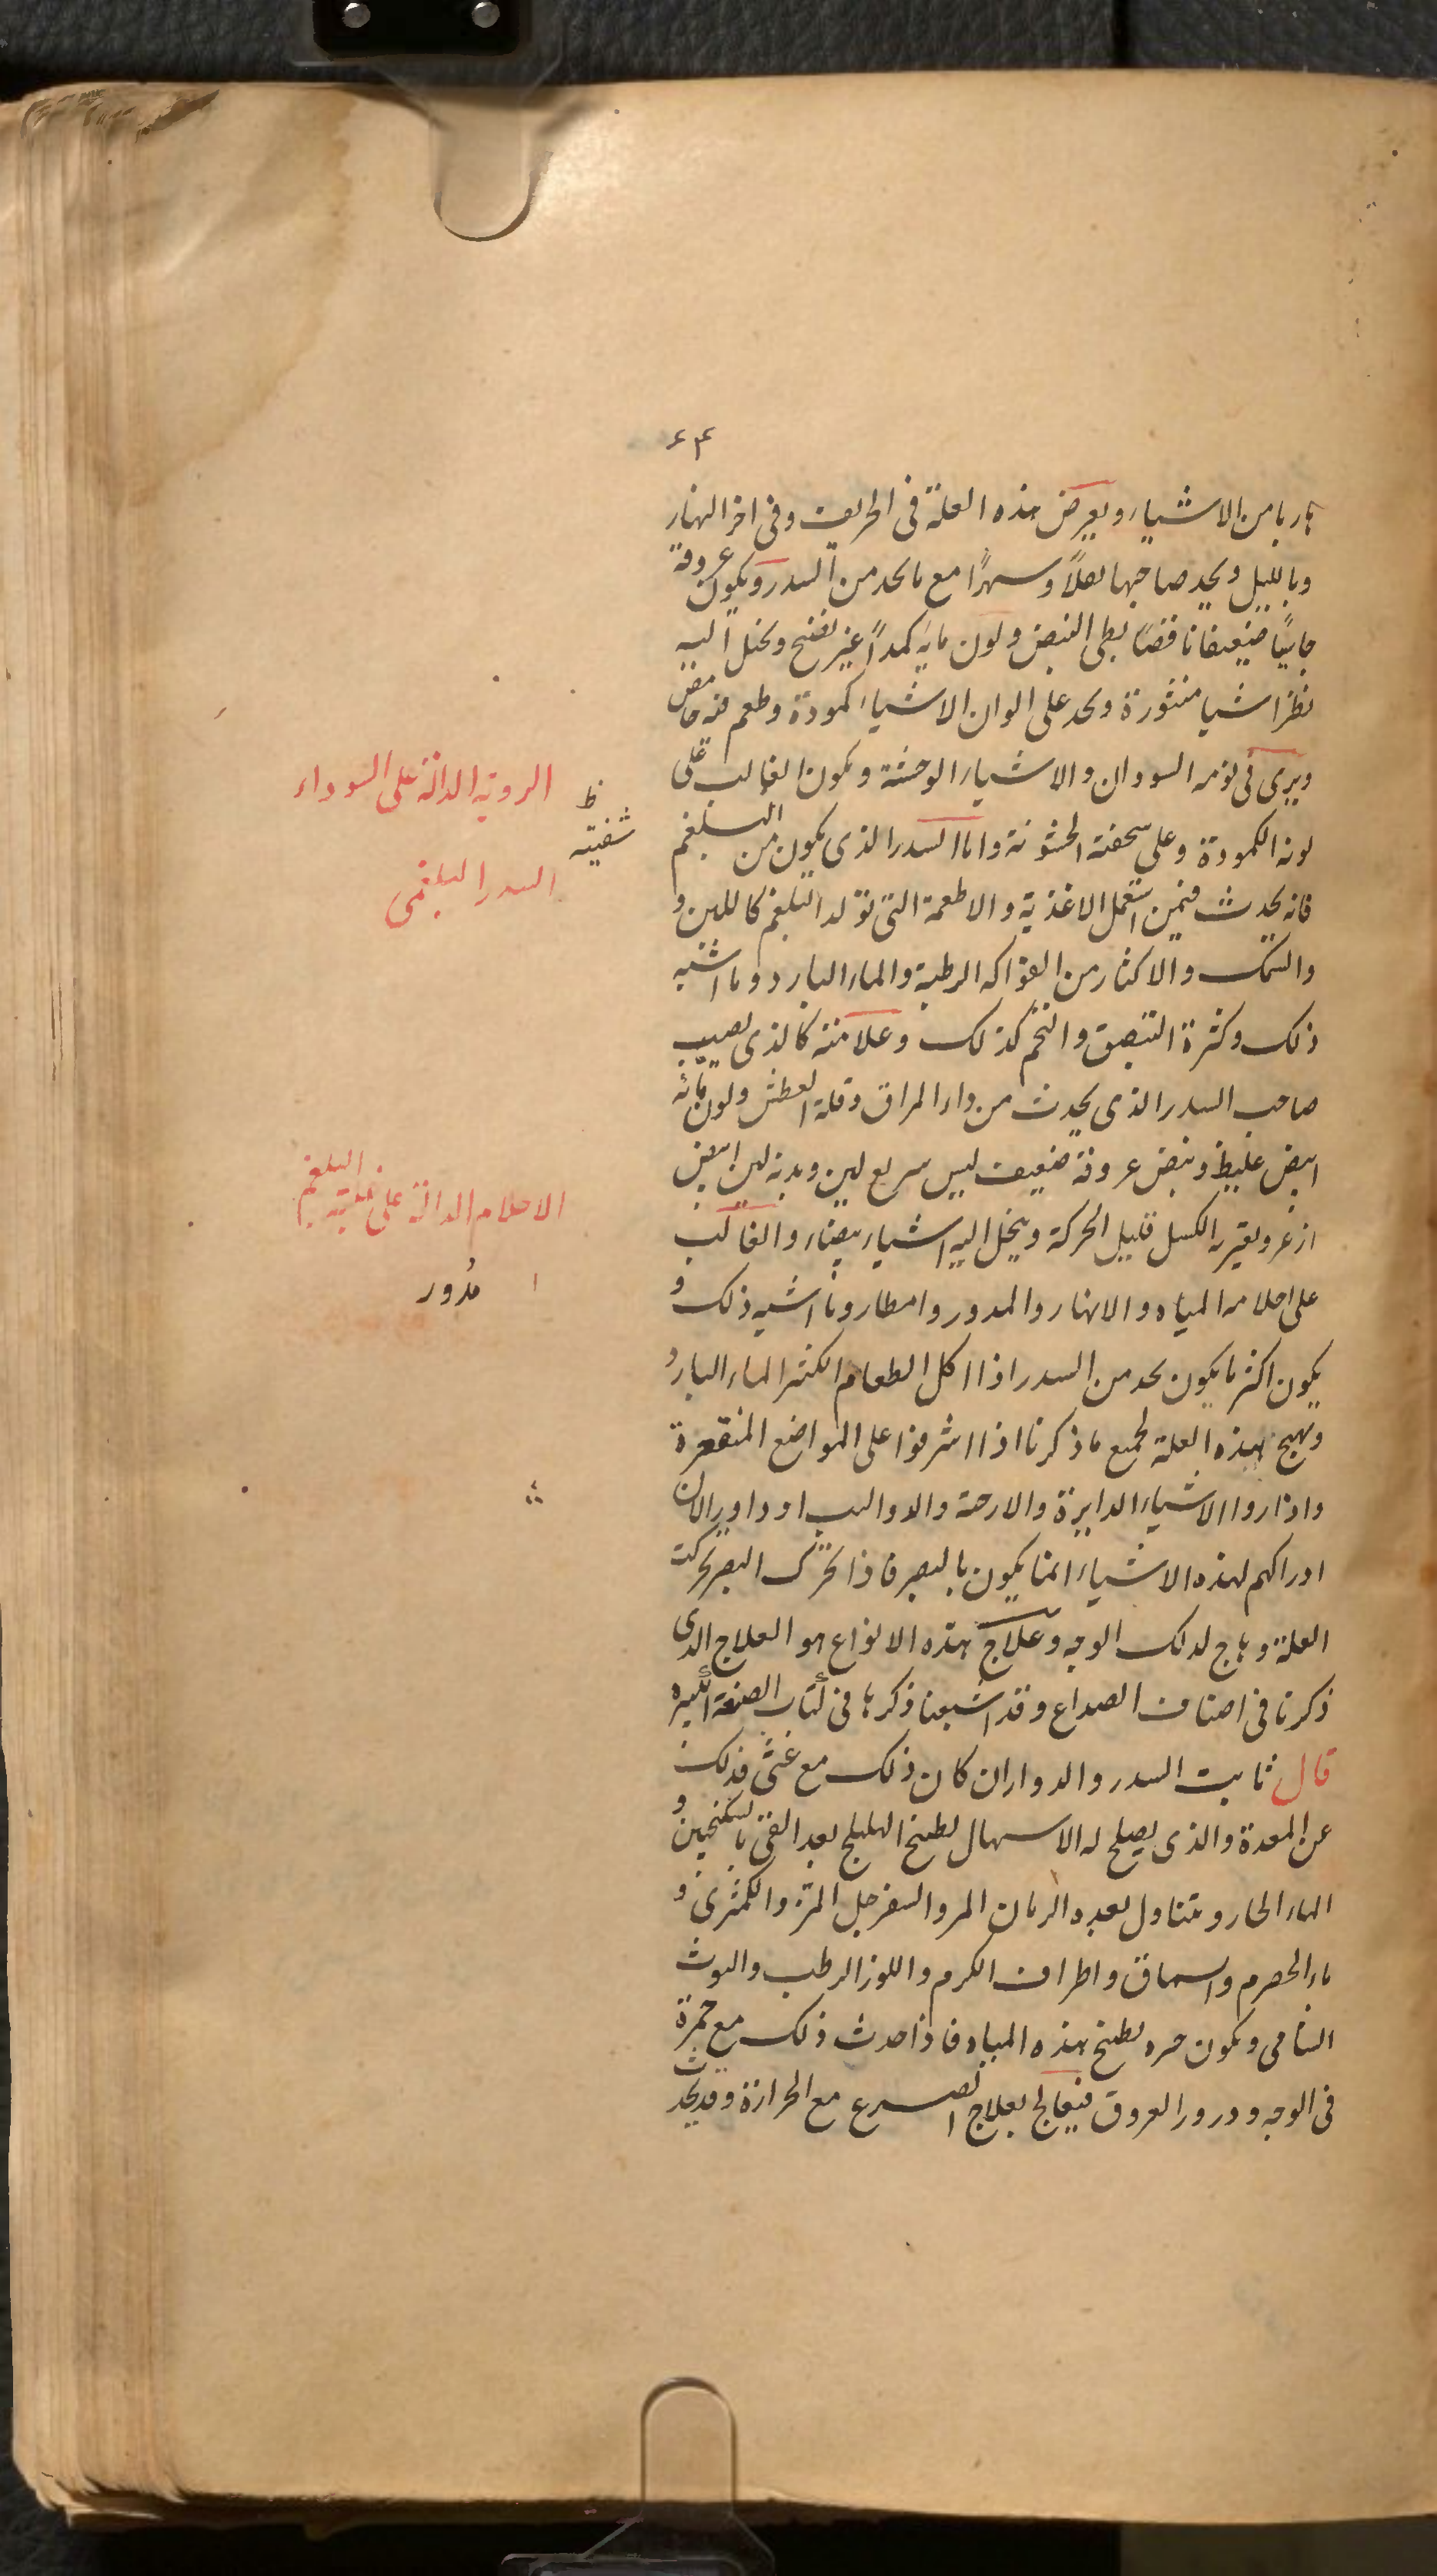 ٤٣
هاربا من الاشياء ويعرض هذه العلة فى الخريف وفى اخر النهار
وبالليل ويجد صاحبها ثقلاً وسهرًا مع ما يجد من السدر ويكون عروقه
ضعيفا ناقصًا بطى النبض ولون مايه كمدًا غير نضيج ويخيل اليه
نظرا اشيا منثورة ويجد على الوان الاشياء كمودة وطعم فيه
ويرى فى نومه السودان والاشياء الوحشة ويكون الغالب على
لونه الكمودة وعلى سحنته الخشونة واما السدر الذى يكون من البلغم
فانه يحدث فيمن استعمل الاغذية والاطعمة التى تولد البلغم كاللبن و
والسمك والاكثار من الفواكه الرطبة والماء البارد وما اشبه
ذلك وكثرة التبصق والتخم كذلك وعلامته كالذى يصيب
صاحب السدر الذى يحدث من داء المراق وقلة العطش ولون مائه
ابيض غليظ ونبض عروقه ضعيف ليس سريع لين وبدنه لين ابيض
ازعر ويعتريه الكسل قليل الحركة ويخيل اليه اشياء بيضاء والغالب
على احلامه المياه والانهار والمدور وامطار وما اشبه ذلك و
يكون اكثر ما يكون يجد من السدر اذا اكل الطعام الماء البارد
وتهيج هذه العلة لجميع ما ذكرنا اذا اشرفوا على المواضع المنقعرة
واذا راوا الاشياء الدايرة والارحة والدواليب لان
ادراكهم لهذه الاشياء انما يكون بالبصر فاذا تحرك البصر تحركت
العلة وهاج لذلك الوجه وعلاج هذه الانواع هو العلاج الذى
ذكرنا فى اصناف الصداع وقد اشبعنا ذكرها فى كتاب الصنعة الكبيره
قال ثابت السدر والدوار ان كان ذلك مع غثى فذلك
عن المعدة والذى يصلح له الاسهال بطبخ الهليلج بعد القى بالسكنجبين و
الماء الحار ويتناول بعده الرمان المر والسفرجل المز والكمثرى و
ماء الحصرم والسماق واطراف الكرم واللوز الرطب والتوث
الشامى ويكون بطبخ هذه المياه فاذا حدث ذلك مع حمرة
فى الوجه ودرور العروق فيعالج بعلاج الصرع مع الحرارة وقد يحدث
الروية الدالة على السوداء
ظ
شفتيه
السدر البلغمى
الاحلام الدالة على غلبة البلغم
مدور